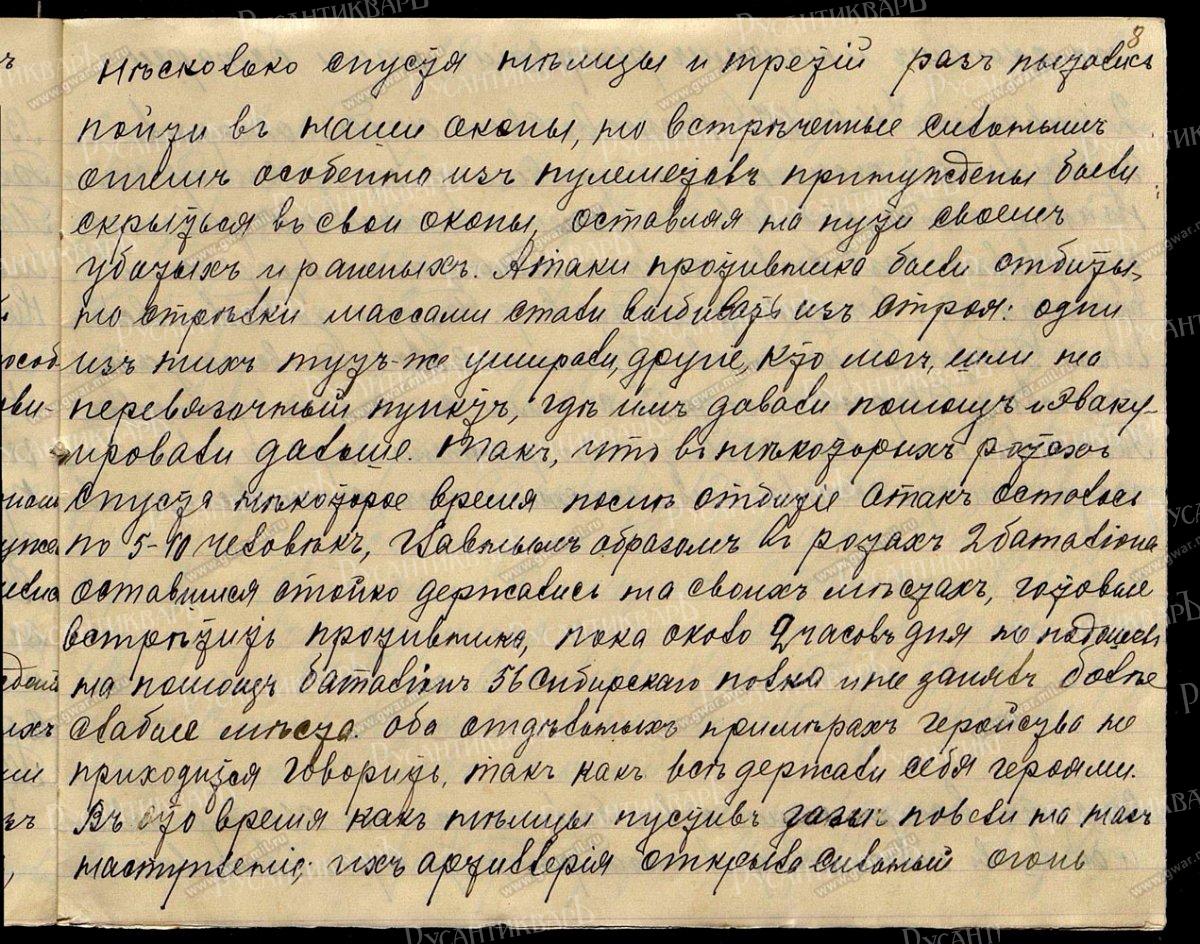 8
Нѣсколько спустя нѣмцы и третій разъ пытались
пойти въ наши окопы, но встрѣченные сильнымъ
огнемъ особенно изъ пулеметовъ принуждены были
скрыться въ свои окопы, оставляя на пути своемъ
убитыхъ и раненыхъ. Атаки противника были отбиты,
но стрѣлки массами стали выбывать изъ строя: одни
изъ нихъ тутъ-же умирали, другіе, кто могъ, шли на
перевязочный пунктъ, гдѣ имъ давали помощь и эваку-
ировали дальше. Такъ, что въ нѣкоторыхъ ротахъ
спустя нѣкоторое время послѣ отбитіе атакъ осталось
по 5-10 человѣкъ, главнымъ образомъ въ ротахъ 2 баталіона
оставшіеся стойко держались на своихъ мѣстахъ, готовые
встрѣтить противника, пока около 2 часовъ дня не подошелъ
на помощь баталіонъ 56 Сибирскаго полка и не занявъ болѣе
слабые мѣста. Объ отдѣльныхъ примѣрахъ геройства не
приходится говорить, такъ какъ всѣ держали себя героями.
Въ это время какъ нѣмцы пустивъ газы повели на насъ
наступленіе, ихъ артиллерія открыла сильный огонь